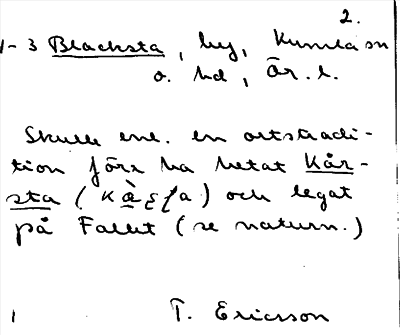 2.
1-3 Blacksta, by, Kumla sn
o. hd, Ör. l.
Skulle enl. en ortstradi-
tion förr ha hetat Kår-
sta ( ) och legat
på Fallet (se naturn.)
1
T. Ericsson